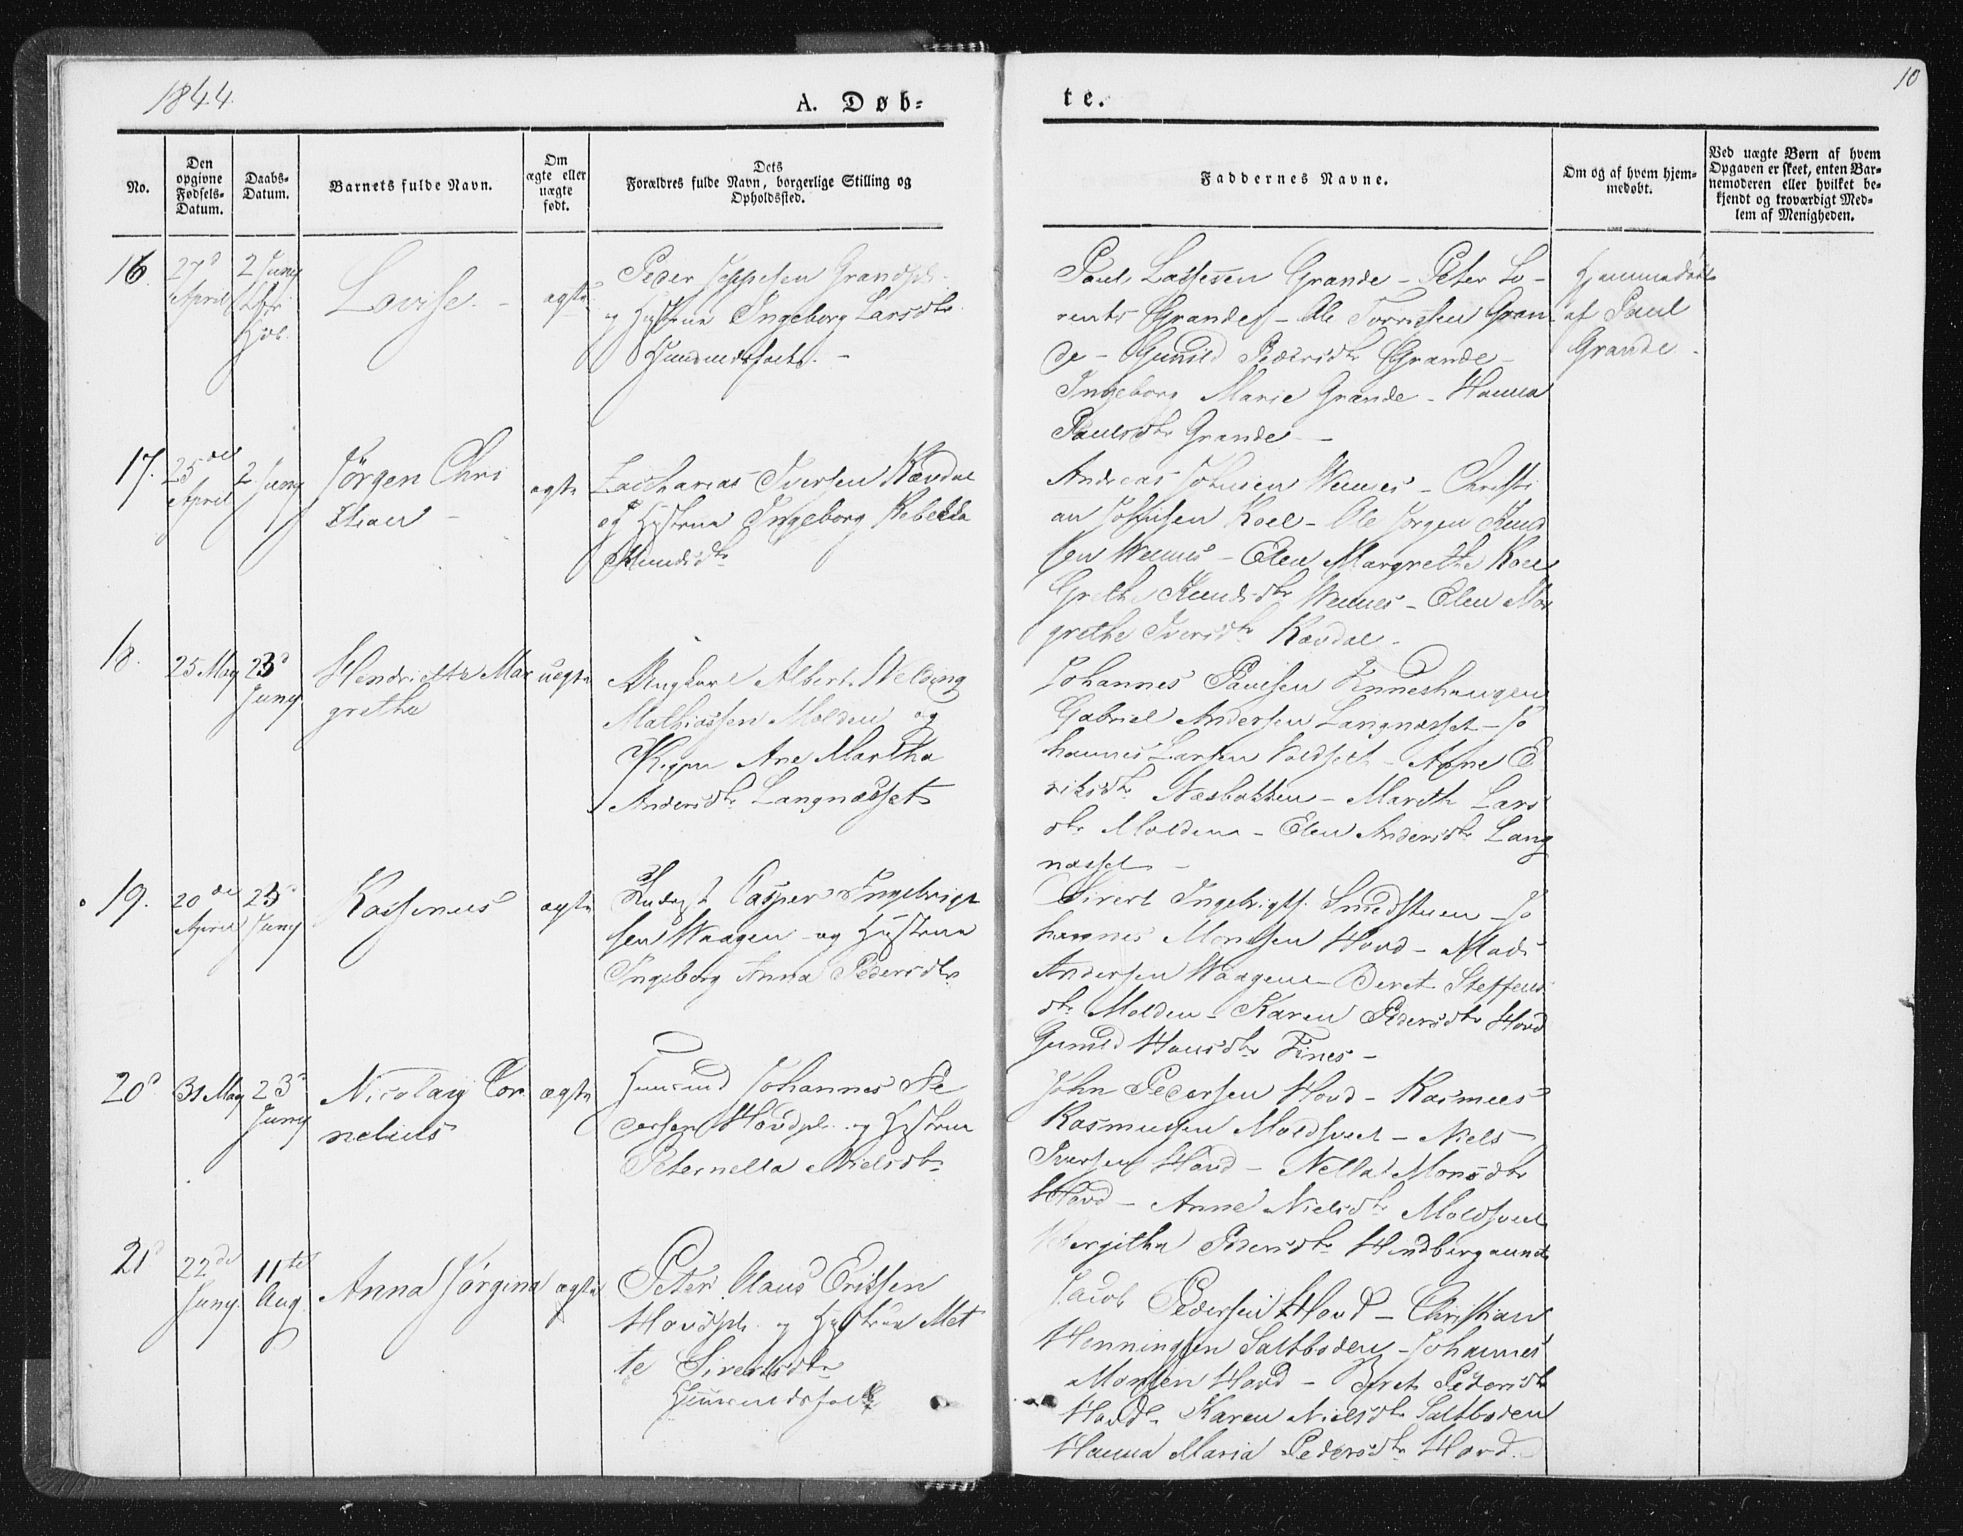 1844
A. Døb-
te.
10
No.
Den
opgivne
Fødsels-
Datum.
Daabs-
Datum.
Barnets fulde Navn.
Om
ægte eller
uægte
født.
Dets
Forældres fulde Navn, borgerlige Stilling og
Opholdssted.
Faddernes Navne.
Om og af hvem hjem-
medøbt.
Ved uægte Børn af hvem
Opgaven er skeet, enten Bar-
nemoderen eller hvilket be-
kjendt og troværdigt Med-
lem af Menigheden.
16.
27d
April
2 Juny
Lovise.
ægte
Peder Jeppesen Grandpl.
og Hustrue Ingeborg Larsdtr
Huusmdsfolk.
Paul Lassesen Grande - Peter Lo-
rents Grande - Ole Torrissen Gran-
de - Gunild Pedersdtr Grande -
Ingeborg Marie Grande - Hanna
Paulsdtr Grande -
Hjemmedøbt
af Paul
Grande -
17.
25de
April
2 Juny
Jørgen Chri
stian -
ægte
Zacharias Iversen Kavdal
og Hustrue Ingeborg Rebekka
Knudsdtr
Andreas Johnsen Wemes - Christi
an Johnsen Koel - Ole Jørgen Knud
sen Wemes - Elen Margrethe Koel
Grethe Knudsdtr Wemes - Elen Mar
grethe Iversdtr Kavdal -
18.
25 May
23d
Juny
Hendriette Mar
grethe
uægte
Ungkarl Albert Welding
Mathiassen Molden og
Pigen Ane Martha
Andersdtr Langnæsset
Johannes Paulsen Finneshaugen
Gabriel Andersen Langnæsset - Jo
hannes Larsen Voldsett - Anne E
riksdtr Næsbakken - Mareth Lars
dtr Molden - Elen Andersdtr Lang
næsset -
19.
20de
April
23d
Juny
Rassinus
ægte
Inderst Casper Ingebrigt
sen Waagen og Hustrue
Ingeborg Anna Pedersdtr
Sivert Ingebrigts. Smedstuen - Jo
hannes Monsen Hovd - Mads
Andersen Waagen - Beret Steffens
dtr Molden - Karen Pedersdtr Hovd
Gunild Hansdtr Fines -
20d
31 May
23d
Juny
Nicolay Cor
nelius
ægte
Huusmd Johannes Pe
dersen Hovdpl. og Hustrue
Peternella Nielsdtr
John Pedersen Hovd - Rasmus
Rasmussen Moldsvet - Niels
Iversen Hovd - Nella Monsdtr
Hovd - Anne Nielsdtr Moldsvet
Bergitha Pedersdtr Hindbergaunet
21d
22de
Juny
11te
Aug.
Anna Jørgina
ægte
Peter Claus Eriksen
Hovdpl. og Hustrue Met
te Sivertsdtr
Huusmdsfolk
Jacob Pedersen Hovd - Christian
Henningsen Saltboden - Johannes
Monsen Hovd - Beret Pedersdtr
Hovd - Karen Nielsdtr Saltboden
Hanna Maria Pedersdtr Hovd.